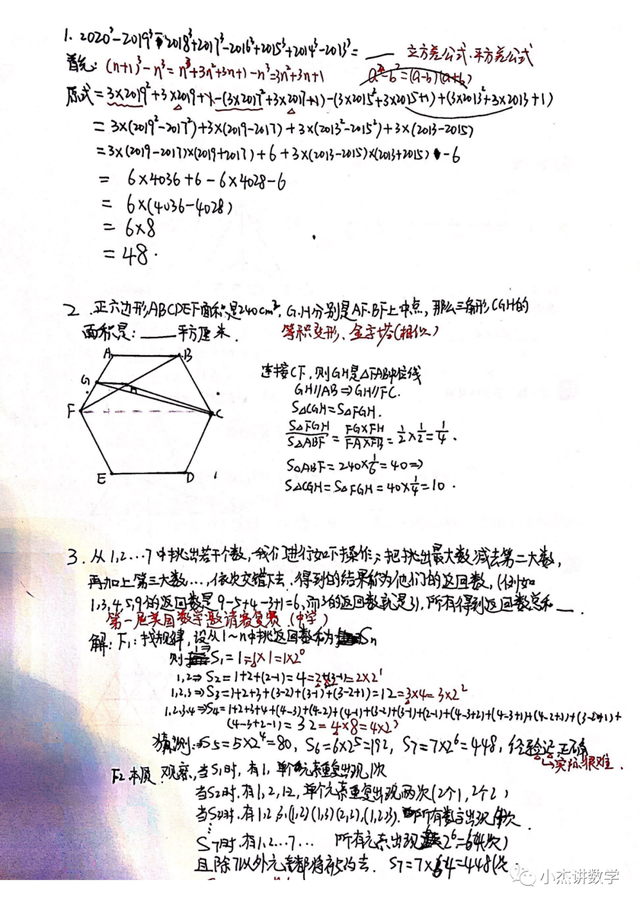 1. 2020³-2019³-2018³+2017³-2016³+2015³+2014³-2013³=____ 立方差公式.平方差公式
首先: (n+1)³-n³=n³+3n²+3n+1-n³=3n²+3n+1 a²-b²=(a-b)(a+b)
原式=3×2019²+3×2019+1-(3×2017²+3×2017+1)-(3×2015²+3×2015+1)+(3×2013²+3×2013+1)
=3×(2019²-2017²)+3×(2019-2017)+3×(2013²-2015²)+3×(2013-2015)
=3×(2019-2017)×(2019+2017)+6+3×(2013-2015)×(2013+2015)-6
= 6×4036+6-6×4028-6
= 6×(4036-4028)
= 6×8
= 48.
2. 正六边形ABCDEF面积是240cm². G.H分别是AF.BF上中点, 那么三角形CGH的
面积是: ____平方厘米. 等积变形、金字塔(相似)
A B
G H
F C
E D
连接CF, 则GH是△FAB中位线
GH//AB⇒GH//FC.
S△CGH=S△FGH.
S△FGH/S△ABF=FG×FH/FA×FB=1/2×1/2=1/4.
S△ABF=240×1/6=40⇒
S△CGH=S△FGH=40×1/4=10.
3. 从1,2...7中挑出若干个数, 我们进行如下操作; 把挑出最大数减去第二大数,
再加上第三大数..., 依次交错下去. 得到的结果称为他们的返回数, (例如
1,3,4,5,9的返回数是9-5+4-3+1=6, 而3的返回数就是3), 所有得到返回数总和__.
第一届美国数学邀请赛复赛(中学)
解: F1: 找规律, 设从1~n中挑返回数和为Sn
则 S1=1=1×1=1×2⁰
1,2⇒S2=1+2+(2-1)=4=2×2¹
1,2,3⇒S3=1+2+3+(3-2)+(3-1)+(3-2+1)=12=3×4=3×2²
1.2.3.4⇒S4=1+2+3+4+(4-3)+(4-2)+(4-1)+(3-2)+(3-1)+(2-1)+(4-3+2)+(4-3+1)+(4-2+1)+(3-2+1)+
(4-3+2-1)=32=4×8=4×2³
猜测: S5=5×2⁴=80, S6=6×2⁵=192, S7=7×2⁶=448, 经验证正确
实际很难.
F2本质. 观察, 当S1时, 有1, 单个元素重复出现1次
当S2时, 有1,2,12, 单个元素重复出现两次(2个1, 2个2)
当S3时, 有1,2,3,(1,2)(1,3)(2,3),(1,2,3), 所有数字出现4次.
S7时, 有1,2...7... 所有元素出现2⁶=64(次)
且除7以外元素都将抵消去. S7=7×64=448
小杰讲数学